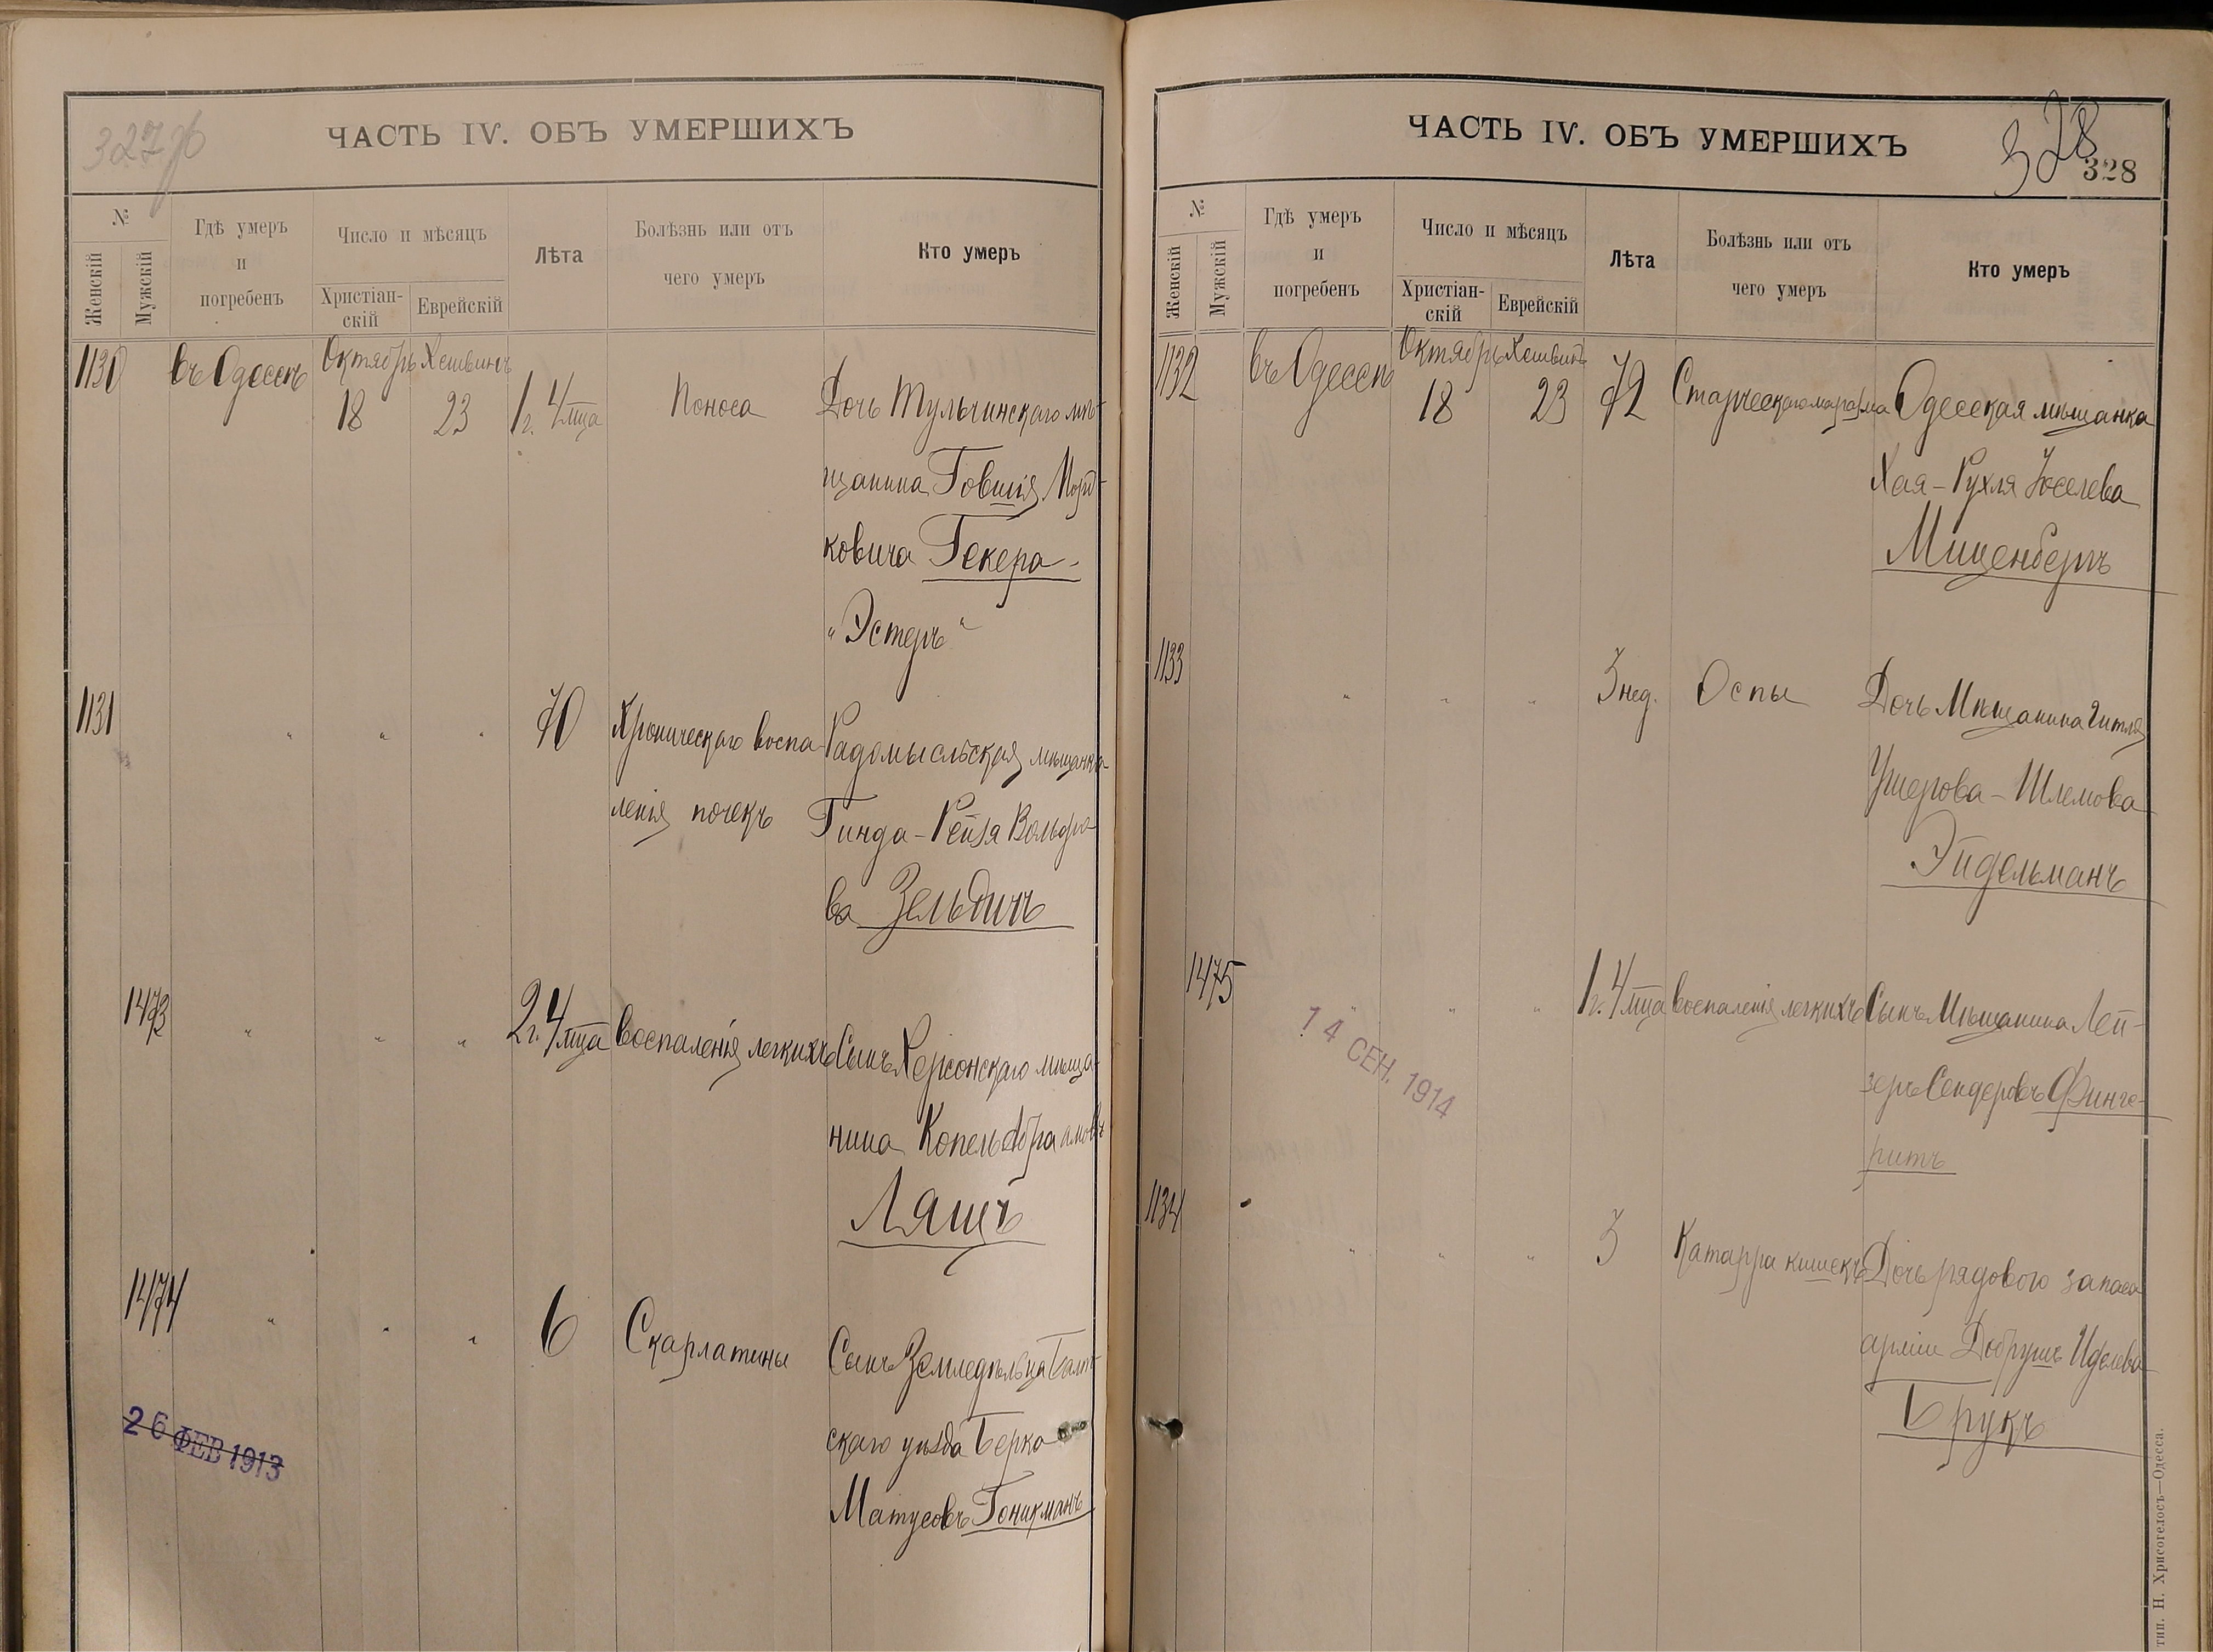 327 об
ЧАСТЬ IV. ОБЪ УМЕРШИХЪ
№
Женскій
Мужскій
Гдѣ умеръ
и
погребенъ
Число и мѣсяцъ
Христіан-
скій
Еврейскій
Лѣта
Болѣзнь или отъ
чего умеръ
Кто умеръ
1130 въ Одессѣ Октябрь Хешвинъ
18 23 1 г. 4 м-ца Поноса Дочь Тульчинскаго мѣ-
щанина Говшія Морд-
ковича Гекера-
"Эстеръ"
1131 " " " 70 Хроническаго воспа- Радомысльская мѣщанка
ленія почекъ Гинда-Рейзя Вольфо-
ва Зельдинъ
1473 " " " 2 г. 4 м-ца Воспаленія легкихъ Сынъ Херсонскаго мѣща-
нина Копель Абрамовъ
Лящъ
1474 " " " 6 Скарлатины Сынъ Земледѣльца Балт-
скаго уѣзда Берко
Матусовъ Гоникманъ
26 ФЕВ 1913
ЧАСТЬ IV. ОБЪ УМЕРШИХЪ
328
328
№
Женскій
Мужскій
Гдѣ умеръ
и
погребенъ
Число и мѣсяцъ
Христіан-
скій
Еврейскій
Лѣта
Болѣзнь или отъ
чего умеръ
Кто умеръ
1132 въ Одессѣ Октябрь Хешвинъ
18 23 72 Старческаго маразма Одесская мѣщанка
Хая-Рухля Іоселева
Миценбергъ
1133 " " " 3 нед. Оспы Дочь Мѣщанина Гитля
Ушерова-Шлемова
Эйдельманъ
1475 " " " 1 г. 4 м-ца Воспаленія легкихъ Сынъ Мѣщанина Лей-
зеръ Сендеровъ Финге-
ритъ
14 СЕН. 1914
1134 " " " 3 Катарра кишекъ Дочь рядового запаса
арміи Добрушъ Иделева
Брукъ
тип. Н. Хрисогелосъ—Одесса.